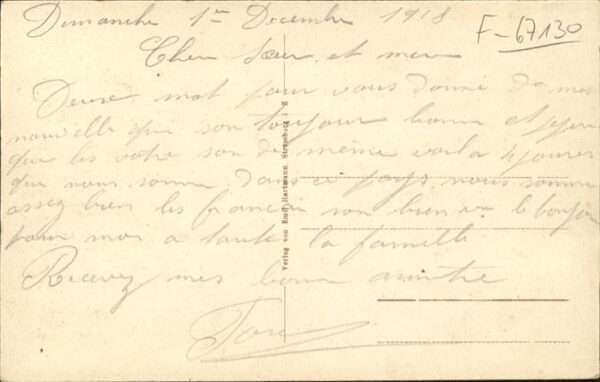 Dimanche 1er Decembre 1918
F-67130
Cher Sœur et mere
Deux mot pour vous donné de mes
nouvelle qui son toujour bonne et
que les votre son de même voila 4 jours
que nous somme dans ce pays nous somme
assez bien les francai son bien vu le bonjour
pour moi a toute la famille
Recevez mes bonne amitié
Verlag von Emil Hartmann, Strassburg i. E.